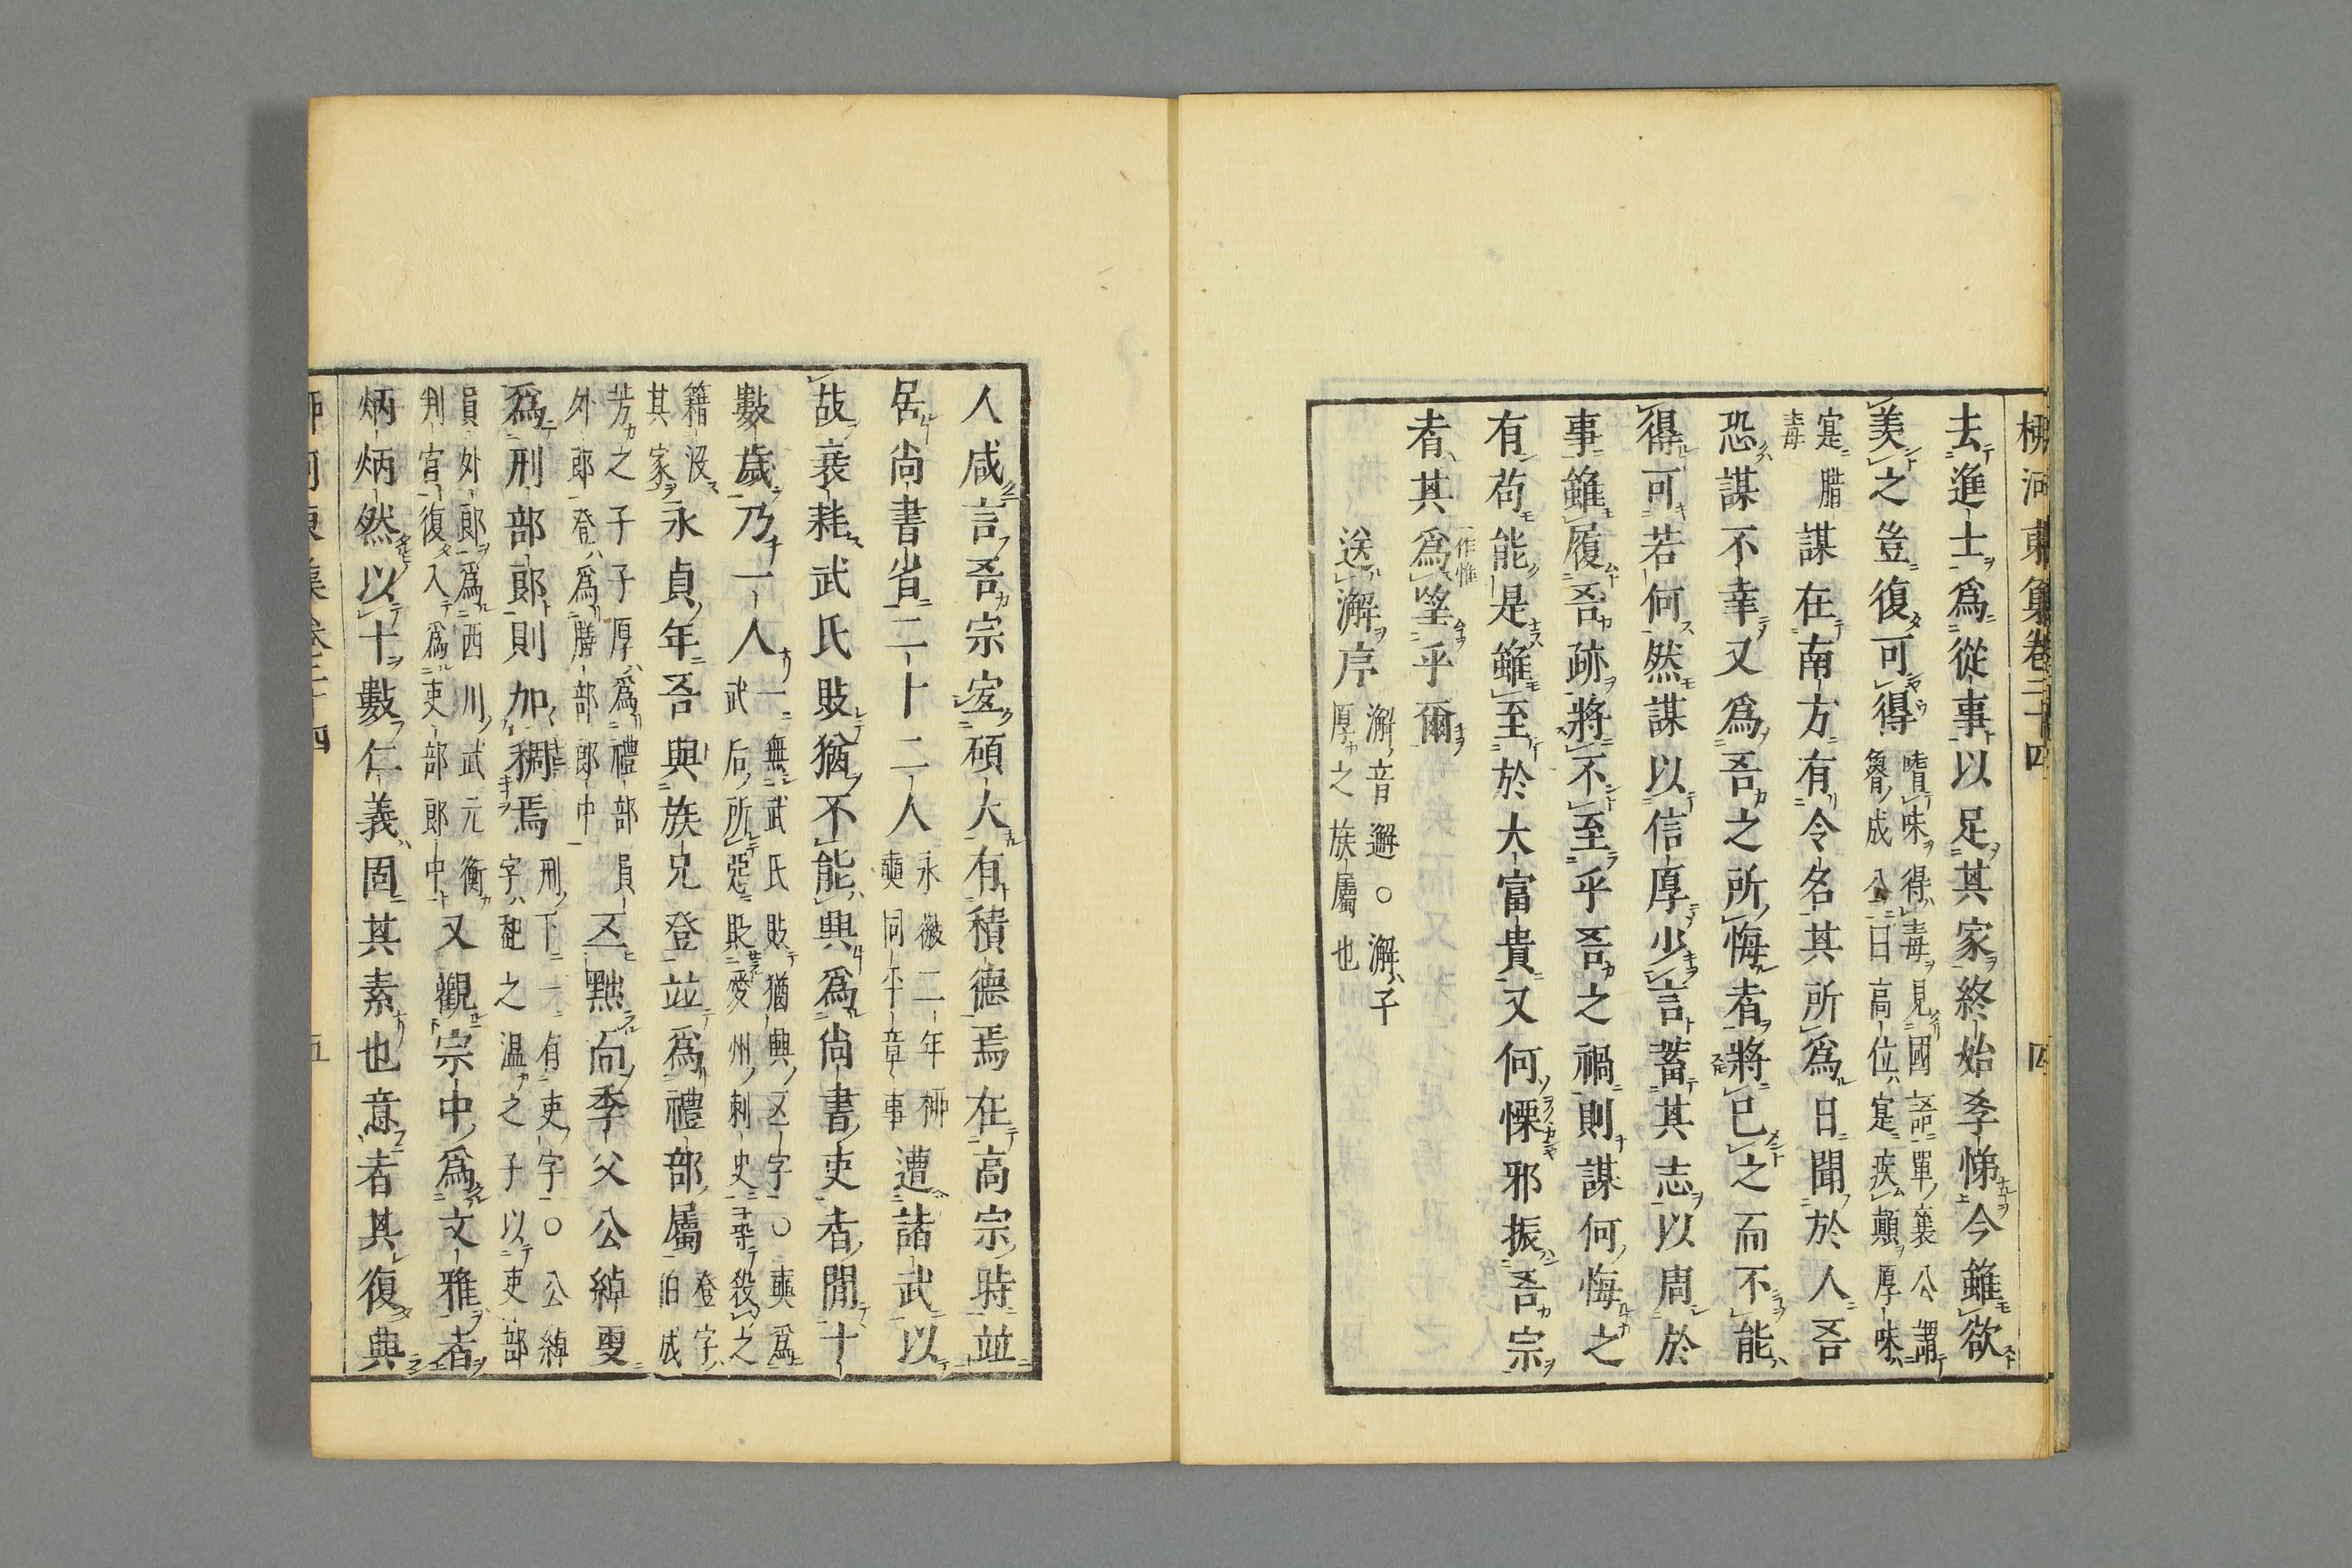 柳河東集卷二十四　四
去進士爲從事以足其家終始孝悌今雖欲
羡之豈復可得
嗜味得毒見國語單襄公謂
魯成公曰高位寔疾顚厚味
寔腊
毒
謀在南方有令名其所爲日聞於人吾
恐謀不幸又爲吾之所悔者將已之而不能
得可若何然謀以信厚少言蓄其志以周於
事雖履吾跡將不至乎吾之禍則謀何悔之
有苟能是雖至於大富貴又何慄邪振吾宗
者其爲
一作惟
望乎爾
送澥序
澥音邂○澥子
厚之族屬也
人咸言吾宗宜碩大有積德焉在高宗時並
居尚書省二十二人
永徽二年柳
奭同平章事
遭諸武以
故衰耗武氏敗猶不能興爲尚書吏者間十
數歲乃一人
一無武氏敗猶興五字○奭爲
武后所惡貶愛州刺史尋殺之
籍沒
其家
永貞年吾與族兄登並爲禮部屬
登字
伯成
芳之子子厚爲禮部員
外郎登爲膳部郎中
吾黜而季父公綽更
爲刑部郎則加稠焉
刑下一有吏字○公綽
字寬之溫之子以吏部
員外郎爲西川武元衡
判官復入爲吏部郎中
又觀宗中爲文雅者
炳炳然以十數仁義固其素也意者其復典
柳河東集卷二十四　五